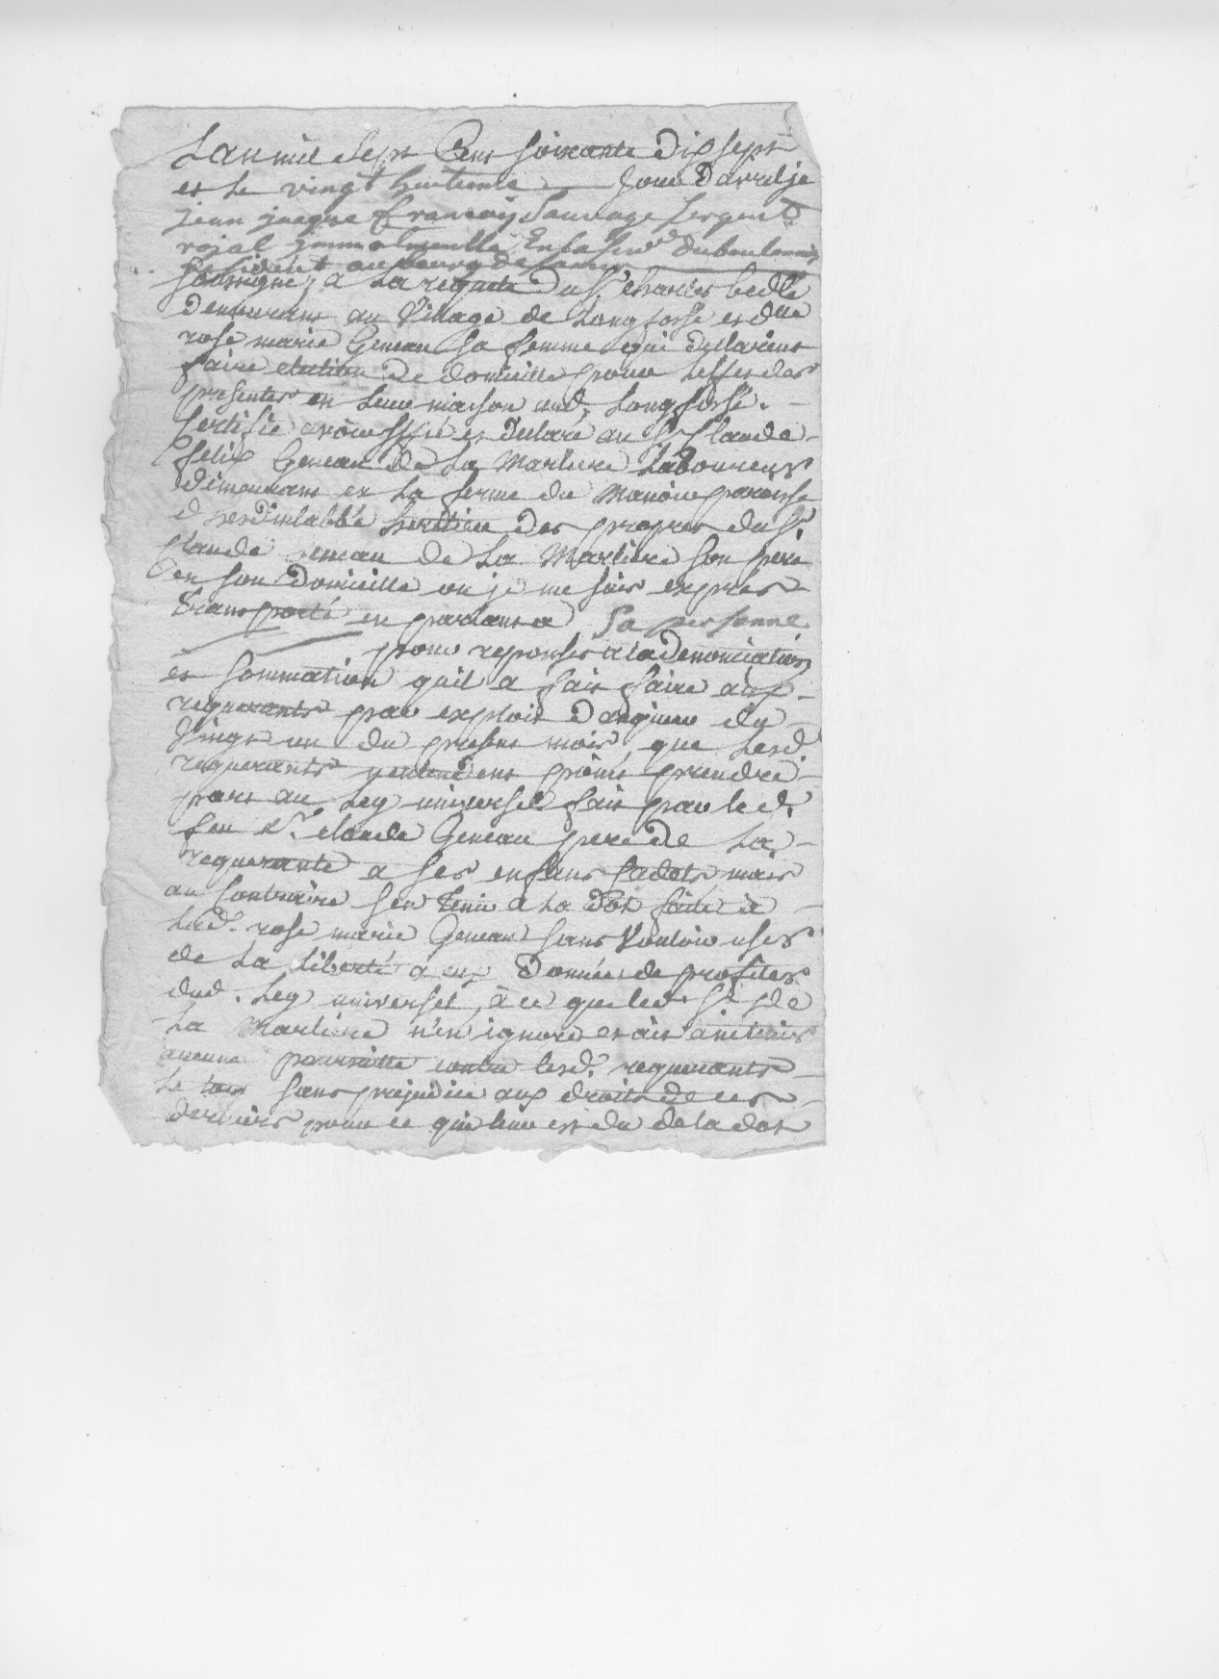 Lan mil Sept Cens soixante Dix sept
et le vingt huitieme jour Davril je
jean jacque francois Sauvage sergent
royal immatriculle En la duboulonnois
residént au bourg de
soussigné, a La requete Du Sr. charles bedle
demeurant au Village de Longfosse et dlle
rose marie Geneau sa femme qui declarent
faire election De domicille pour Leffet des
presentes en Leur maison aud. Longfossé.
Certifie avoir signifié et declaré au Sr Claude
felix Geneau de La Marliere Laboureur
demeurant en La ferme du Manoir paroisse
d'hesdinlabbé herittier Des propres du Sr.
Claude Geneau de La Marliere son pere
en son Domicille ou je me suis exprès
transporté en parlant a Sa personne
pour reponses a la denonciation
et sommation quil a fait faire aux
requerants par exploit D du
Vingt un du present mois, que Lesd.
requerants n'entendent point prendre
part au Leg universel fait par led.
feu Sr. claude Geneau pere De La
requerante a ses enfans mais
au contraire sen tenir a La dot faite a
Lad. rose marie Geneau sans Vouloir user
de La liberté a eux Donnée de profiter
dud. Leg universel, à ce que led. Sr. De
La Marliere n'en ignore et ait
aucune poursuitte contre lesd. requerants
Le tout sans prejudice aux droits De ces
derniers pour ce qui leur est du de la dot